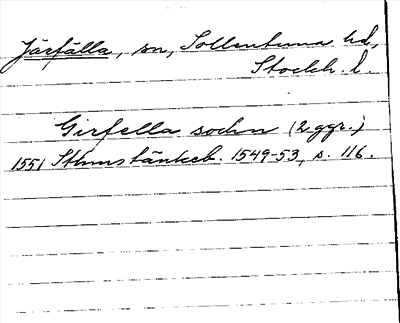 Järfälla, sn, Sollentuna hd,
Stockh. l.
Girfella sochn (2 ggr.)
1551 Sthms tänkeb. 1549-53, s. 116.